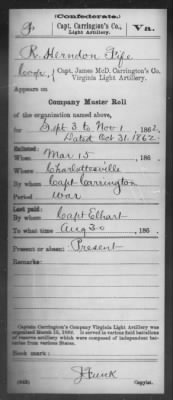 (Confederate.)
F. Capt. Carrington's Co., Va.
Light Artillery.
R. Herndon Fife
Corp., Capt. James McD. Carrington's Co.,
Virginia Light Artillery.
Appears on
Company Muster Roll
of the organization named above,
for Sept 3 to Nov 1, 1862.
Dated Oct 31, 1862.
Enlisted:
When Mar 15, 186
Where Charlottesville
By whom Capt Carrington
Period war
Last paid:
By whom Capt Elhart
To what time Aug 30, 186
Present or absent Present
Remarks:
Captain Carrington's Company Virginia Light Artillery was
organized March 1862. It served in various field battalions
of reserve artillery which were composed of independent bat-
teries from various States.
Book mark:
J Funk
(642) Copyist.